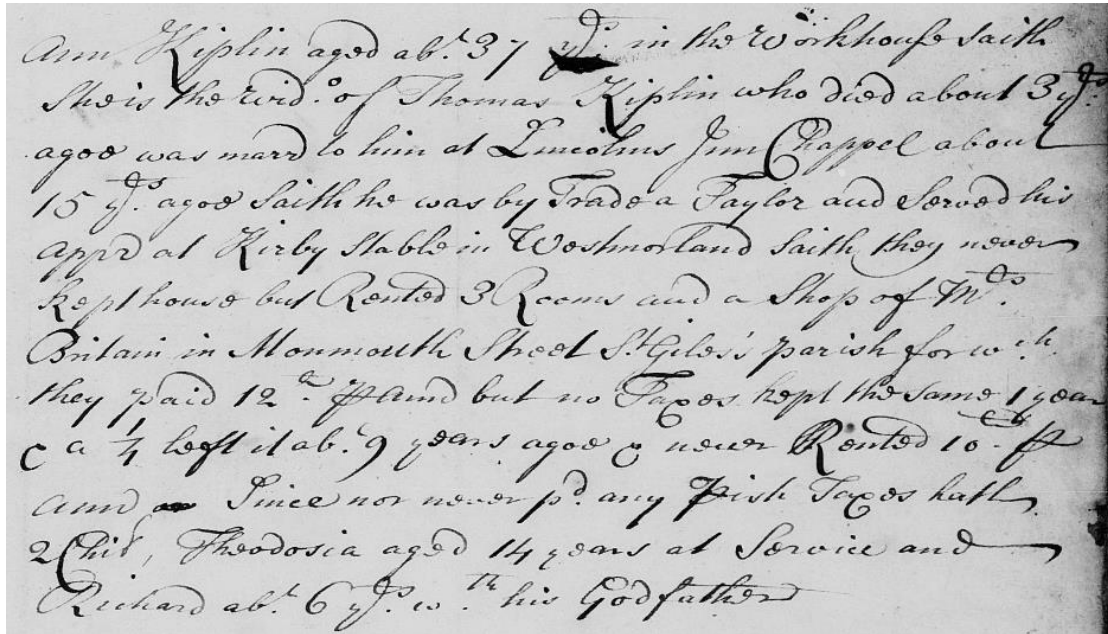 Ann Kiplin aged abt. 37 yrs. in the Workhouse saith
She is the Wido. of Thomas Kiplin who died about 3 yrs.
agoe was marrd to him at Lincolns Inn Chappel about
15 yrs. agoe Saith he was by Trade a Taylor and Served his
appr at Kirby Stable in Westmorland Saith they never
kept house but Rented 3 Rooms and a Shop of Mrs.
Britain in Monmouth Street St. Giles's parish for wch.
they paid 12 ₶ ann but no Taxes kept the same 1 year
& a 1/4 left it abt. 9 years agoe & never Rented 10 ₶
ann Since nor never pd. any pish Taxes hath
2 Chil, Theodosia aged 14 years at Service and
Richard abt. 6 yrs. wth his Godfather